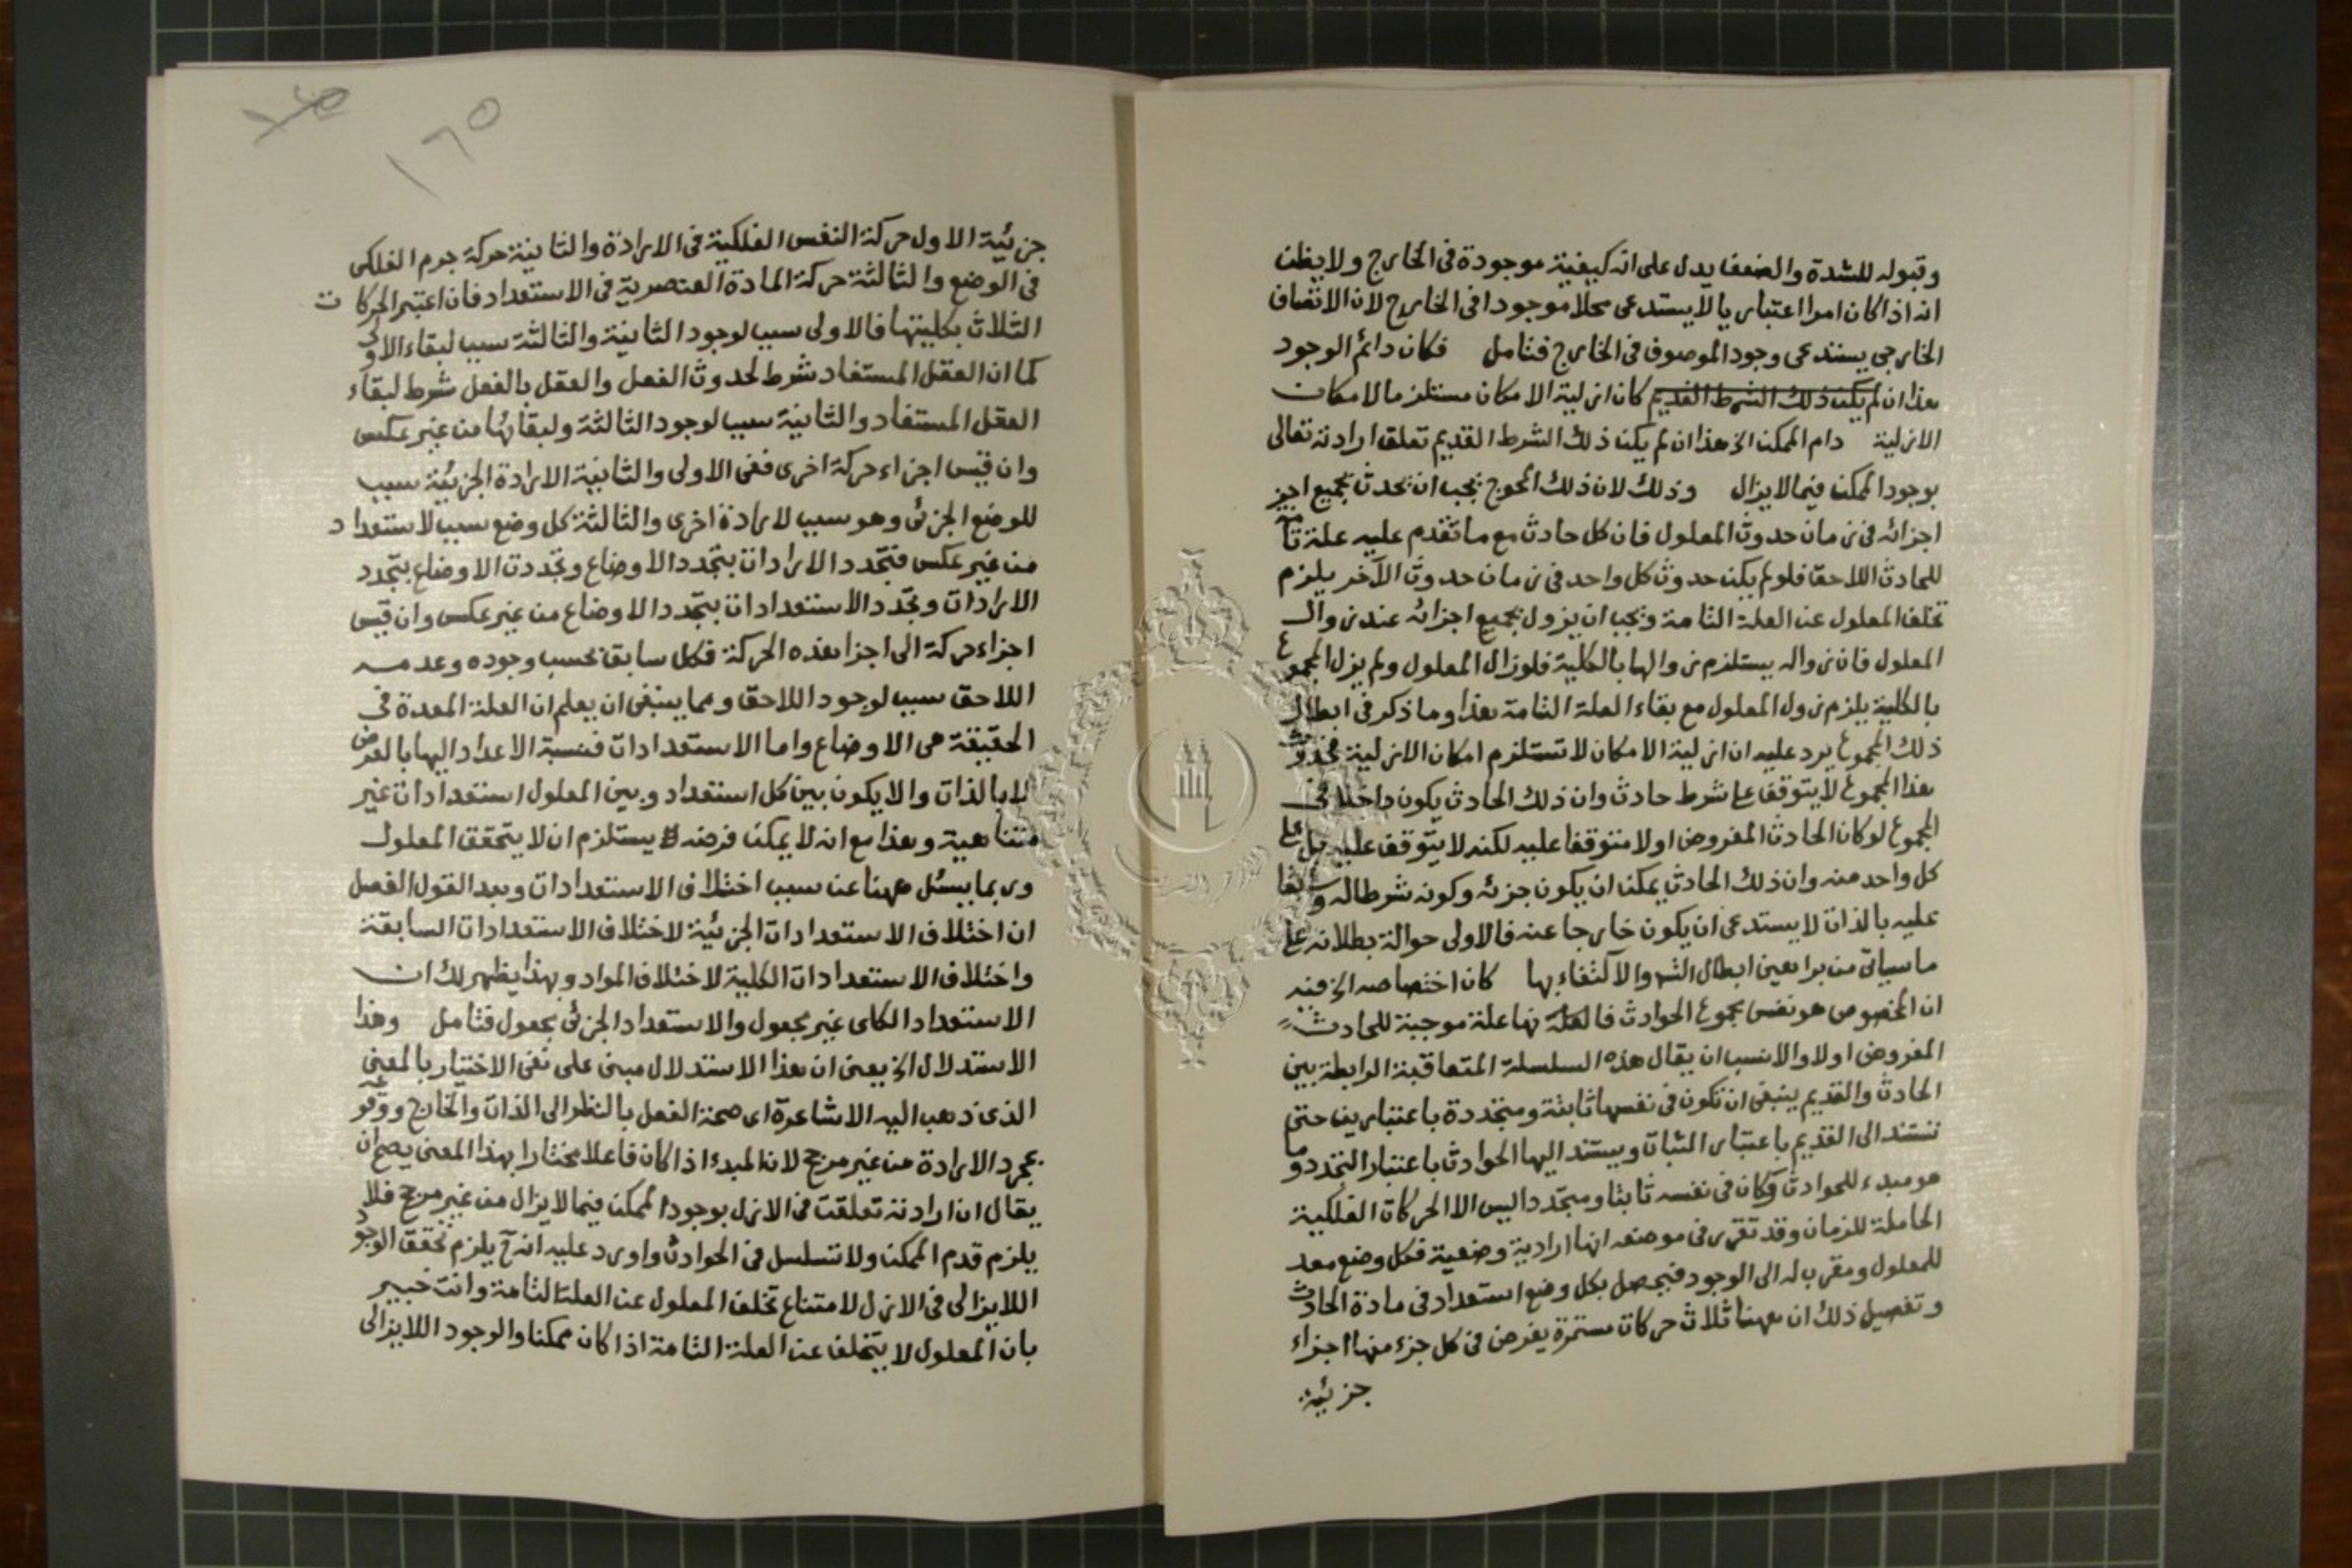 وقبوله للشدة والضعف يدل على انه كيفية موجودة فى الخارج ولا يظن
انه اذا كان امرا اعتباريا لا يستدعى محلا موجودا فى الخارج لان الاتصاف
الخارجى يستدعى وجود الموصوف فى الخارج فتامل فكان دائم الوجود
هذا ان لم يكن ذلك الشرط القديم كان ازلية الامكان مستلزما لامكان
الازلية دام الممكن الخ هذا ان لم يكن ذلك الشرط القديم تعلق ارادته تعالى
بوجود الممكن فيما لا يزال وذلك لان ذلك المحوج يجب ان يحدث بجميع اجز
اجزائه فى زمان حدوث المعلول فان كل حادث مع ما تقدم عليه علة تامة
للحادث اللاحق فلو لم يكن حدوث كل واحد فى زمان حدوث الآخر يلزم
تخلف المعلول عن العلة التامة ويجب ان يزول بجميع اجزائه عند زوال
المعلول فان زواله يستلزم زوالها بالكلية فلو زال المعلول ولم يزل المجموع
بالكلية يلزم زول المعلول مع بقاء العلة التامة هذا وما ذكر فى ابطال
ذلك المجموع يرد عليه ان ازلية الامكان لا تستلزم امكان الازلية فحدوث
هذا المجموع لا يتوقف على شرط حادث وان ذلك الحادث يكون داخلا فى
المجموع لو كان الحادث المفروض اولا متوقفا عليه لكنه لا يتوقف عليه بل على
كل واحد منه وان ذلك الحادث يمكن ان يكون جزئه وكونه شرطا له
عليه بالذات لا يستدعى ان يكون خارجا عنه فالاولى حوالة بطلانه على
ما سيأتى من براهين ابطال التس والاكتفاء بها كان اختصاصه الخ فيه
ان المخصوص هو نفس مجموع الحوادث فانها علة موجبة للحادث
المفروض اولا والانسب ان يقال هذه السلسلة المتعاقبة الرابطة بين
الحادث والقديم ينبغى ان تكون فى نفسها ثابتة ومتجددة باعتبارين حتى
تستند الى القديم باعتبار الثبات ويستند اليها الحوادث باعتبار التجدد وما
هو مبدء للحوادث وكان فى نفسه ثابتا ومتجددا ليس الا الحركات الفلكية
الحاملة للزمان وقد تقرر فى موضعه انها ارادية وضعية فكل وضع معد
للمعلول ومقرب له الى الوجود فيحصل بكل وضع استعداد فى مادة الحادث
وتفصيل ذلك ان ههنا ثلاث حركات مستمرة يفرض فى كل جزء منها اجزاء
جزئية
١٦٥
جزئية الاول حركة النفس الفلكية فى الارادة والثانية حركة جرم الفلكى
فى الوضع والثالثة حركة المادة العنصرية فى الاستعداد فان اعتبر الحركات
الثلاث بكليتها فالاولى سبب لوجود الثانية والثالثة سبب لبقاء الاولى
كما ان العقل المستفاد شرط لحدوث الفعل والعقل بالفعل شرط لبقاء
العقل المستفاد والثانية سبب لوجود الثالثة ولبقائها من غير عكس
وان قيس اجزاء حركة اخرى ففى الاولى والثانية الارادة الجزئية سبب
للوضع الجزئى وهو سبب لارادة اخرى والثالثة كل وضع سبب لاستعداد
من غير عكس فتجدد الارادات بتجدد الاوضاع وتجددت الاوضاع بتجدد
الارادات وتجدد الاستعدادات بتجدد الاوضاع من غير عكس وان قيس
اجزاء حركة الى اجزا هذه الحركة فكل سابق بحسب وجوده وعدمه
اللاحق سبب لوجود اللاحق ومما ينبغى ان يعلم ان العلة المعدة فى
الحقيقة هى الاوضاع واما الاستعدادات فنسبة الاعداد اليها بالعرض
لا بالذات والا يكون بين كل استعداد وبين المعلول استعدادات غير
متناهية وهذا مع انه لا يمكن فرضه يستلزم ان لا يتحقق المعلول
وربما يسئل ههنا عن سبب اختلاف الاستعدادات وبعد القول الفصل
ان اختلاف الاستعدادات الجزئية لاختلاف الاستعدادات السابقة
واختلاف الاستعدادات الكلية لاختلاف المواد وبهذا يظهر لك ان
الاستعداد الكلى غير مجعول والاستعداد الجزئى مجعول فتامل وهذا
الاستدلال الخ يعنى ان هذا الاستدلال مبنى على نفى الاختيار بالمعنى
الذى ذهب اليه الاشاعرة اى صحة الفعل بالنظر الى الذات والخارج ووقوعه
بمجرد الارادة من غير مرجح لان المبدء اذا كان فاعلا مختارا بهذا المعنى يصح ان
يقال ان ارادته تعلقت فى الازل بوجود الممكن فيما لا يزال من غير مرجح فلا
يلزم قدم الممكن ولا تسلسل فى الحوادث واورد عليه انه ح يلزم تحقق الوجود
اللايزالى فى الازل لامتناع تخلف المعلول عن العلة التامة وانت خبير
بان المعلول لا يتخلف عن العلة التامة اذا كان ممكنا والوجود اللايزالى